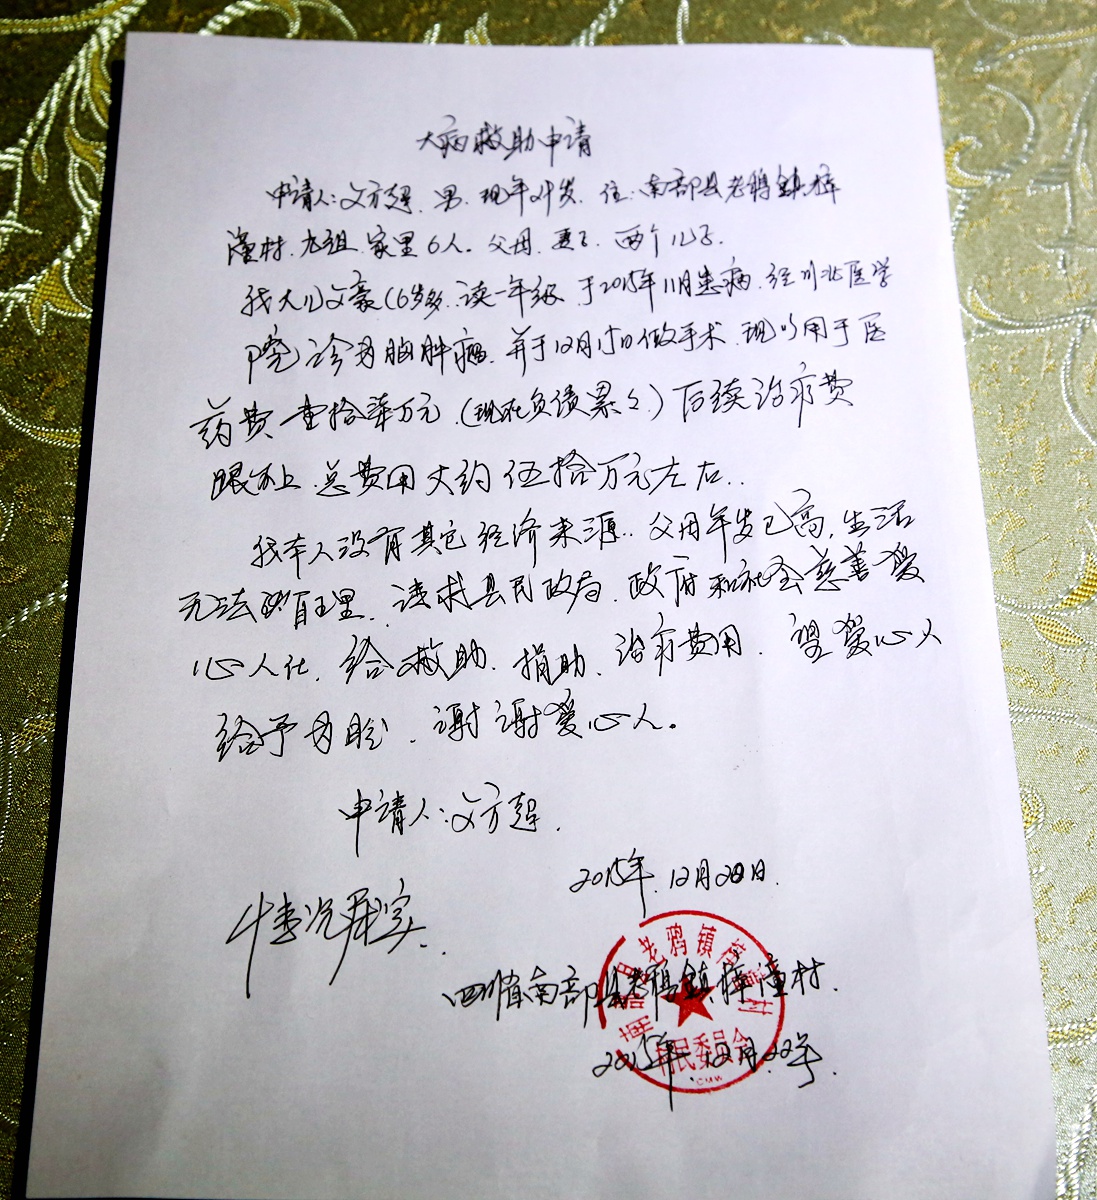 大病救助申请
申请人:文方超.男.现年29岁.住:南部县老鸦镇梓
潼村.九组.家里6人.父母.妻子.两个儿子.
我大儿文豪(6岁多.读一年级.于2015年11月患病.经川北医学
院诊为脑肿瘤.并于12月15日做手术.现以用于医
药费壹拾柒万元.(现在负债累々.)后续治疗费
跟不上.总费用大约伍拾万元左右..
我本人没有其它经济来源..父母年岁已高,生活
无法自理.请求县民政局.政府和社会慈善爱
心人仕.给救助.捐助.治疗费用.望爱心人
给予为盼.谢谢爱心人。
申请人:文方超.
2015年.12月20日.
情况属实.
四川省南部县老鸦镇梓潼村.
2015年.12月.22号.
南部县老鸦镇梓潼村
村民委员会